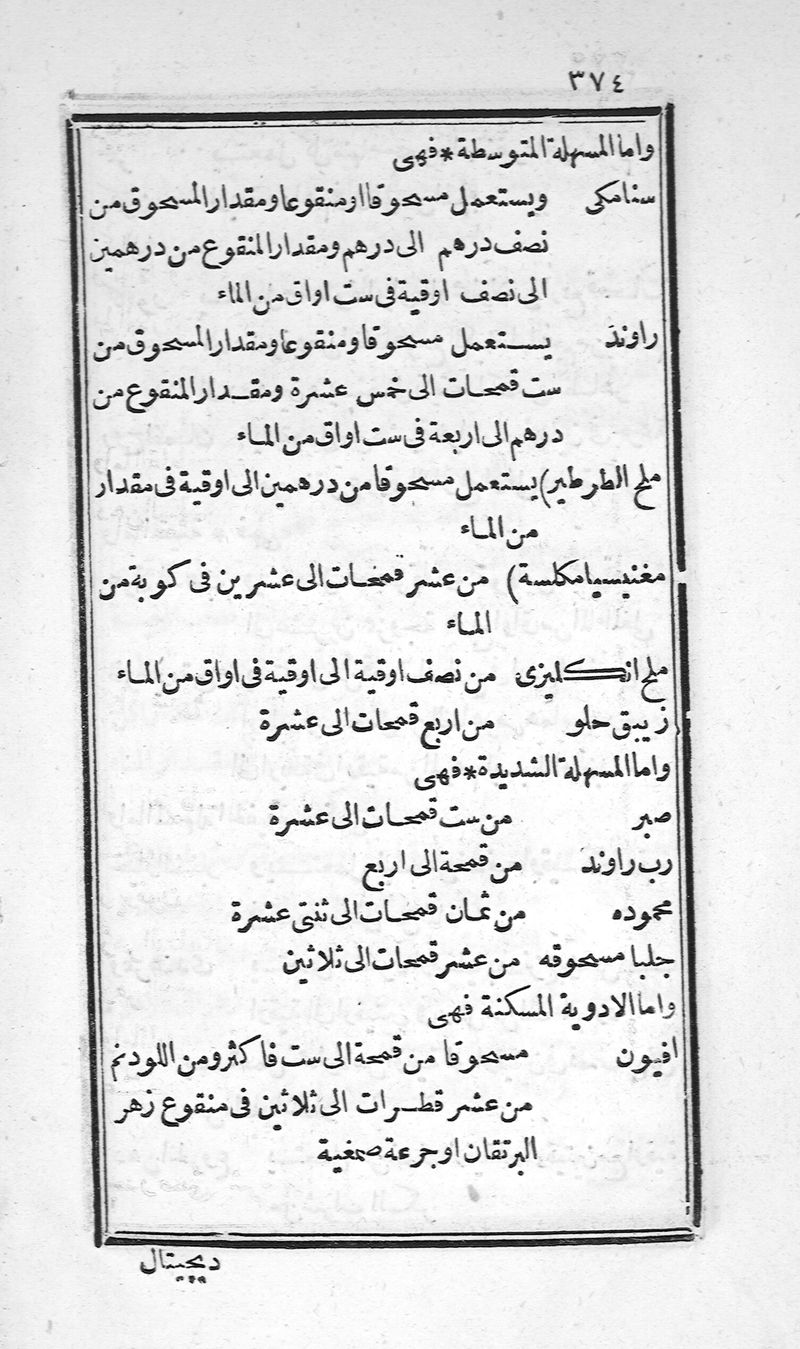 ٣٧٤
واما المسهلة المتوسطة * فهى
سنامكى ويستعمل مسحوقا او منقوعا ومقدار المسحوق من
نصف درهم الى درهم ومقدار المنقوع من درهمين
الى نصف اوقية فى ست اواق من الماء
راوند يستعمل مسحوقا ومنقوعا ومقدار المسحوق من
ست قمحات الى خمس عشرة ومقدار المنقوع من
درهم الى اربعة فى ست اواق من الماء
ملح الطرطير) يستعمل مسحوقا من درهمين الى اوقية فى مقدار
من الماء
مغنيسيا مكلسة) من عشر قمحات الى عشرين فى كوبة من
الماء
ملح انكليزى من نصف اوقية الى اوقية فى اواق من الماء
زيبق حلو من اربع قمحات الى عشرة
واما المسهلة الشديدة * فهى
صبر من ست قمحات الى عشرة
رب راوند من قمحة الى اربع
محموده من ثمان قمحات الى ثنتى عشرة
جلبا مسحوقه من عشر قمحات الى ثلاثين
واما الادوية المسكنة فهى
افيون مسحوقا من قمحة الى ست فاكثر ومن اللودنم
من عشر قطرات الى ثلاثين فى منقوع زهر
البرتقان او جرعة صمغية
ديجيتال